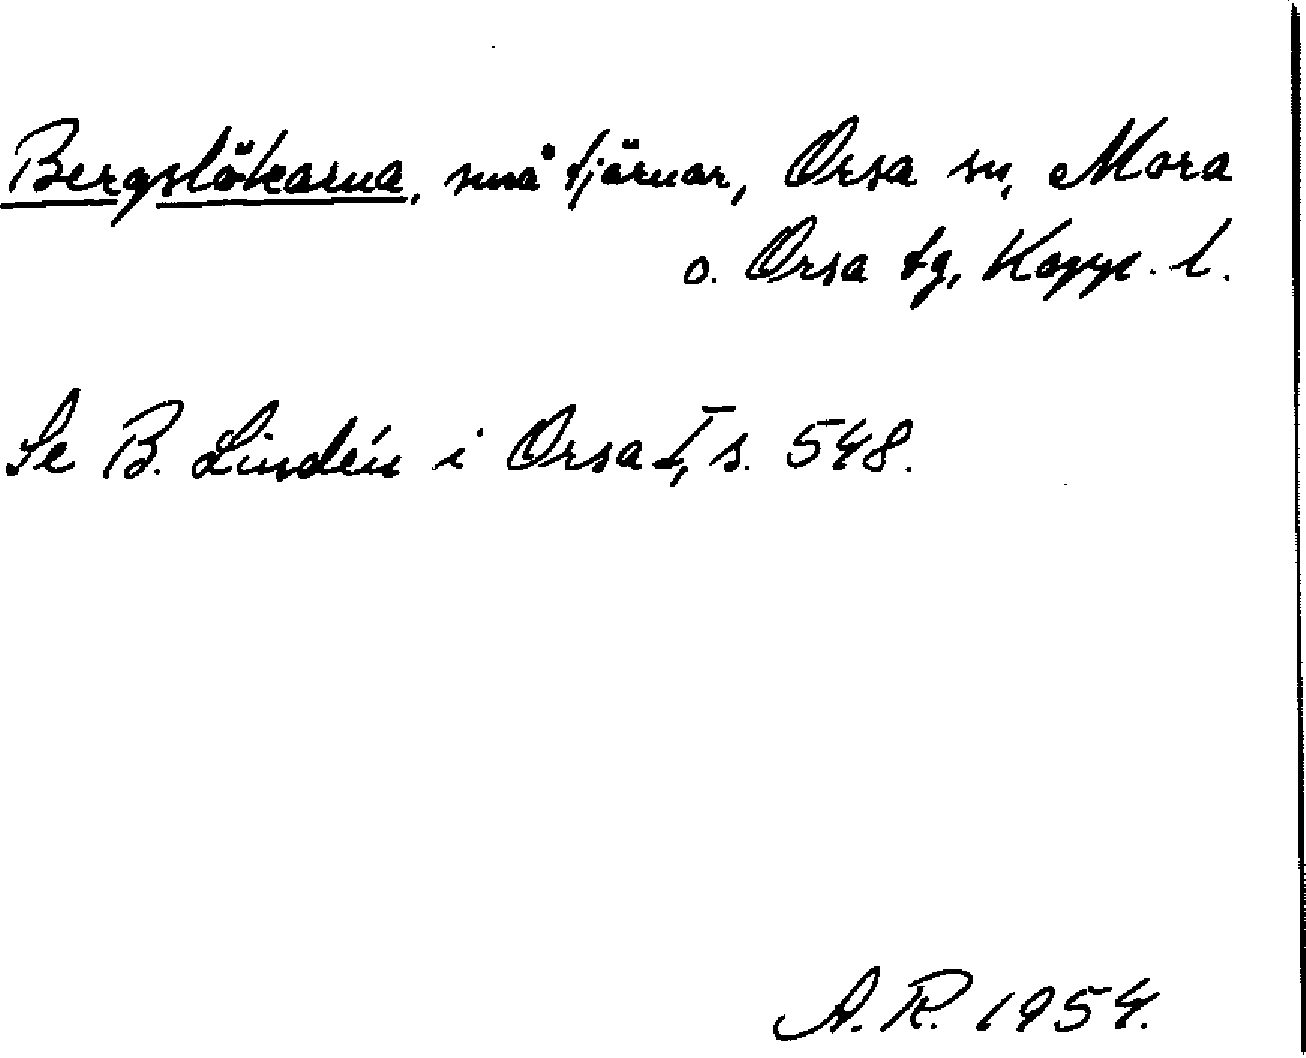 Bergslökarna, små tjärnar, Orsa sn, Mora
o. Orsa tg, Kopp. l.
Se B. Lindén i Orsa I, s. 548.
A. R. 1954.